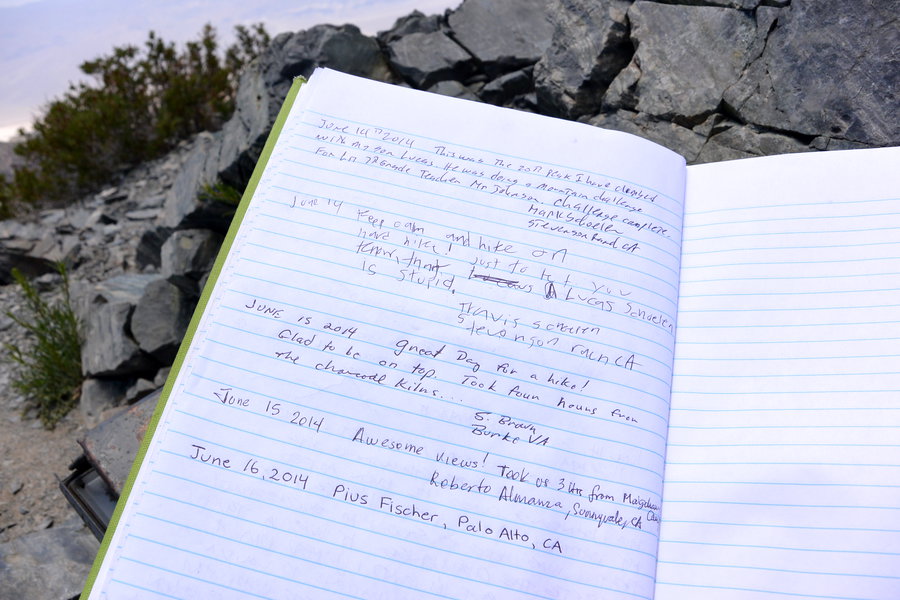 June 14th 2014 This was the 20th Peak I have climbed
with my son Lucas. He was doing a mountain challenge
For his 7th Grade Teacher Mr Johnson. Challenge complete.
Mark Schoelen
Stevenson Ranch CA
June 14 Keep calm and hike on
have hike! Just to let you
know, that Lucas Schoelen
is stupid.
Travis Schoelen
Stevenson ranch CA
JUNE 15 2014 Great Day for a hike!
Glad to be on top. Took four hours from
the charcoal kilns...
S. Brown
Burke VA
June 15 2014 Awesome views! Took us 3 hrs from
Roberto Almanza, Sunnyvale, CA
June 16, 2014 Pius Fischer, Palo Alto, CA